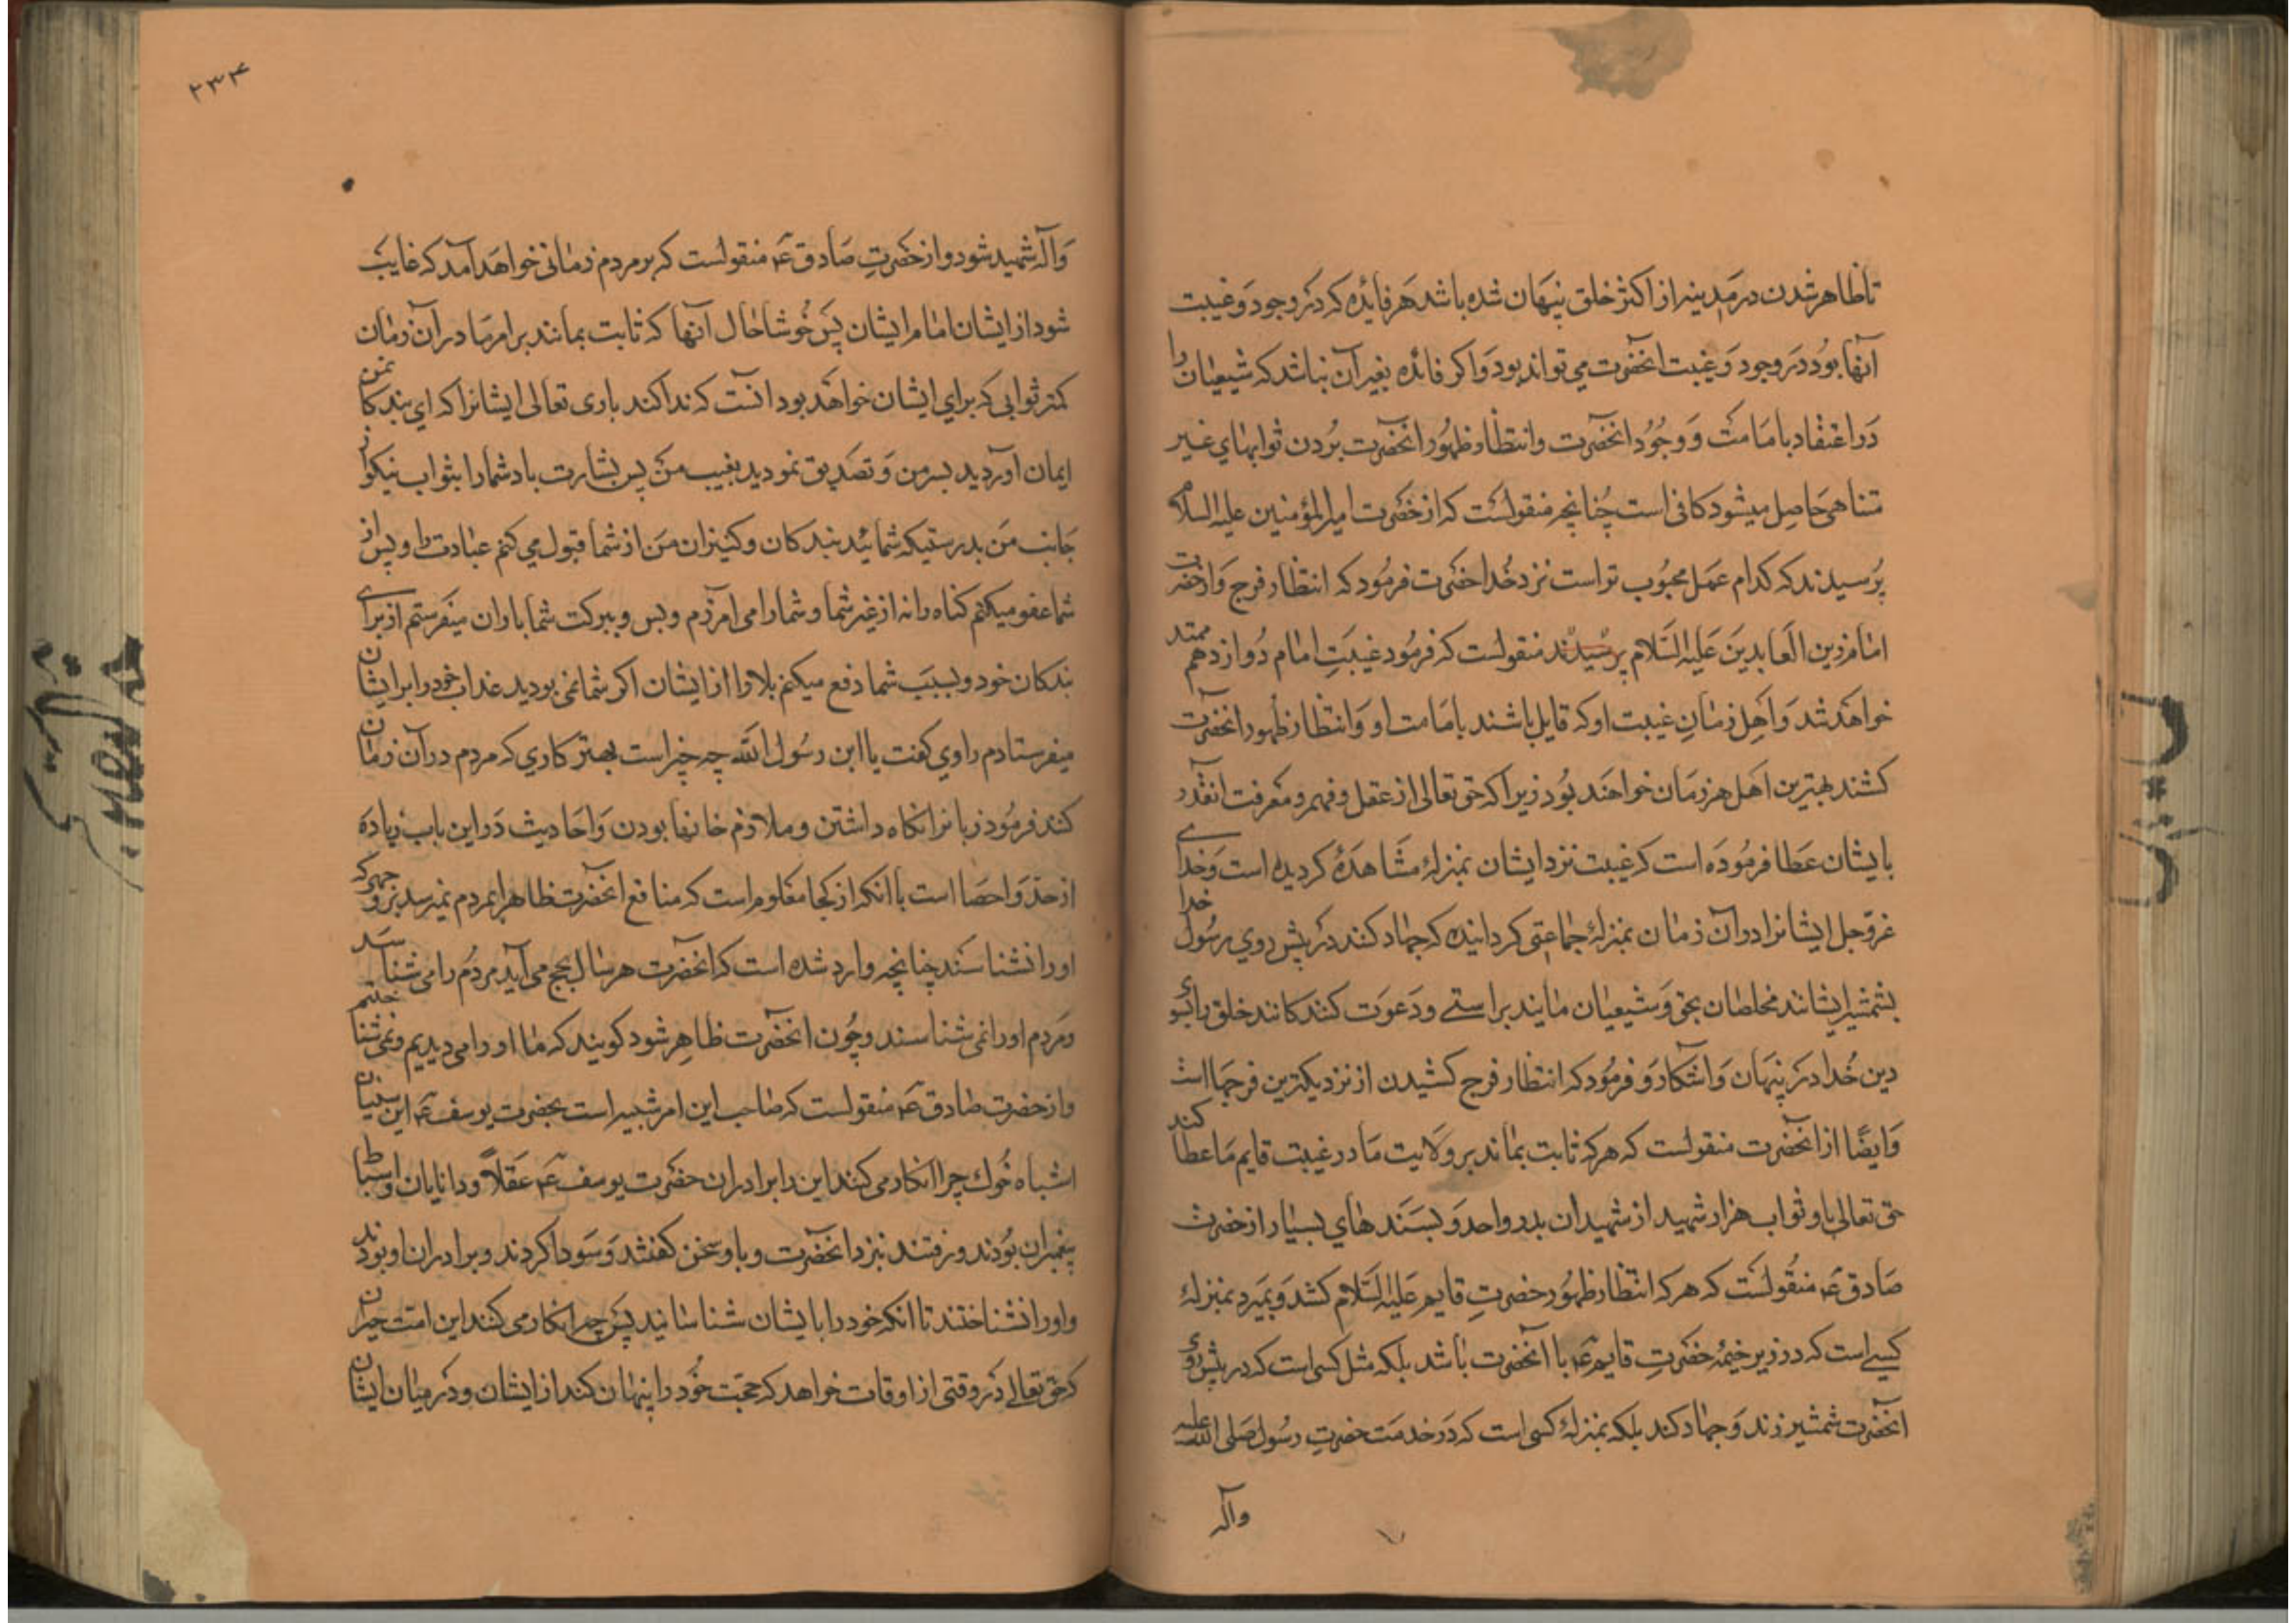 تا ظاهر شدن در مدینه از اکثر خلق پنهان شده باشد هر فایده که در وجود و غیبت
آنها بود در وجود و غیبت انحضرت می تواند بود و اکر فائده بغیر آن نباشد که شیعیان را
در اعتقاد بامامت و وجود انحضرت و انتظار ظهور انحضرت بردن ثوابهای غیر
متناهی حاصل میشود کافی است چنانچه منقولست که از حضرت امیرالمؤمنین علیه السلام
پرسیدند که کدام عمل محبوب تر است نزد خدا حضرت فرمود که انتظار فرج و از حضرت
امام زین العابدین علیه السلام پرسیدند منقولست که فرمود غیبت امام دوازدهم ممتد
خواهد شد و اهل زمان غیبت او که قایل باشند بامامت او و انتظار ظهور انحضرت
کشند بهترین اهل هر زمان خواهند بود زیرا که حق تعالی از عقل و فهم و معرفت آنقدر
بایشان عطا فرموده است که غیبت نزد ایشان بمنزلهٔ مشاهده کردیده است و خدای
عزوجل ایشانرا در آن زمان بمنزلهٔ جماعتی کردانیده که جهاد کنند در پیش روی رسول خدا
بشمشیر ایشانند مخلصان بحق و شیعیان مایند براستی و دعوت کنندکانند خلق را بسوی
دین خدا در پنهان و آشکار و فرمود که انتظار فرج کشیدن از نزدیکترین فرجها است
و ایضًا از انحضرت منقولست که هر که ثابت بماند بر ولایت ما در غیبت قایم ما عطا کند
حق تعالی باو ثواب هزار شهید از شهیدان بدر و احد و بسندهای بسیار از حضرت
صادق ع منقولست که هر که انتظار ظهور حضرت قایم علیه السلام کشد و بمیرد بمنزلهٔ
کسی است که در زیر خیمهٔ حضرت قایم ع با آنحضرت باشد بلکه مثل کسی است که در پیش روی
انحضرت شمشیر زند و جهاد کند بلکه بمنزلهٔ کسی است که در خدمت حضرت رسول صلی الله علیه
وآله
۲۳۴
وآله شهید شود و از حضرت صادق ع منقولست که بر مردم زمانی خواهد آمد که غایب
شود از ایشان امام ایشان پس خوشا حال آنها که ثابت بمانند بر امر ما در آن زمان
کمتر ثوابی که برای ایشان خواهد بود انست که ندا کند باری تعالی ایشانرا که ای بندکان من
ایمان آوردید بسر من و تصدیق نمودید بغیب من پس بشارت باد شما را بثواب نیکو از
جانب من بدرستیکه شمائید بندکان و کنیزان من از شما قبول می کنم عبادت را و پس از
شما عفو میکنم کناه را نه از غیر شما و شما را می امرزم و بس و ببرکت شما باران میفرستم از برای
بندکان خود و بسبب شما دفع میکنم بلا را از ایشان اکر شما نمی بودید عذاب خود را بر ایشان
میفرستادم راوی کفت یا ابن رسول الله چه چیز است بهتر کاری که مردم در آن زمان
کنند فرمود زبانرا نکاه داشتن و ملازم خانها بودن و احادیث در این باب زیاده
از حد و احصا است با انکه از کجا معلوم است که منافع انحضرت ظاهرا بمردم نمیرسد بر وجهی که
او را نشناسند چنانچه وارد شده است که انحضرت هر سال بحج می آید مردم را می شناسد
و مردم او را نمی شناسند و چون انحضرت ظاهر شود کویند که ما او را می دیدیم و نمی شناختیم
و از حضرت صادق ع منقولست که صاحب این امر شبیه است بحضرت یوسف ع این سنیان
اشباه خوك چرا انکار می کنند این را برادران حضرت یوسف ع عقلا و دانایان و اسباط
پیغمبران بودند و رفتند نزد انحضرت و با و سخن کفتند و سودا کردند و برادران او بودند
و او را نشناختند تا انکه خود را بایشان شناسانید پس چرا انکار می کنند این امت حیران
که حق تعالی در وقتی از اوقات خواهد که حجت خود را پنهان کند از ایشان و در میان ایشان